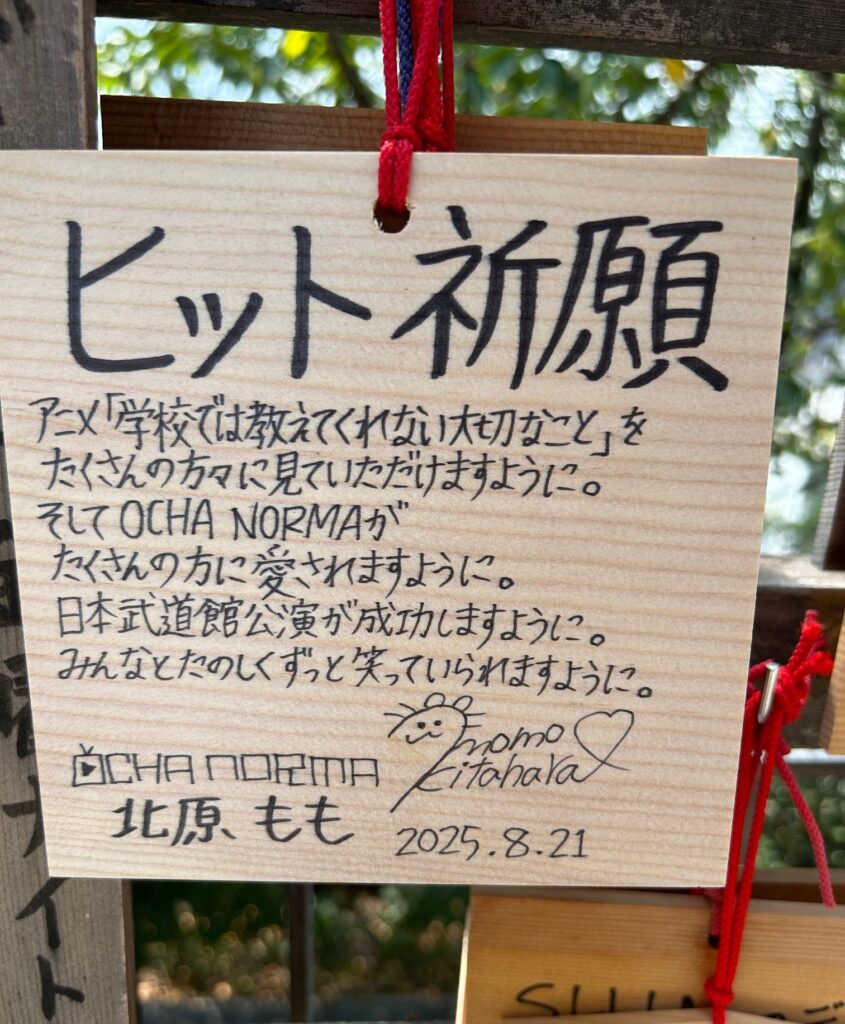 ヒット祈願
アニメ「学校では教えてくれない大切なこと」を
たくさんの方々に見ていただけますように。
そして OCHA NORMAが
たくさんの方に愛されますように。
日本武道館公演が成功しますように。
みんなとたのしくずっと笑っていられますように。
momo
kitahara
OCHA NORMA
北原もも
2025.8.21
ナイト